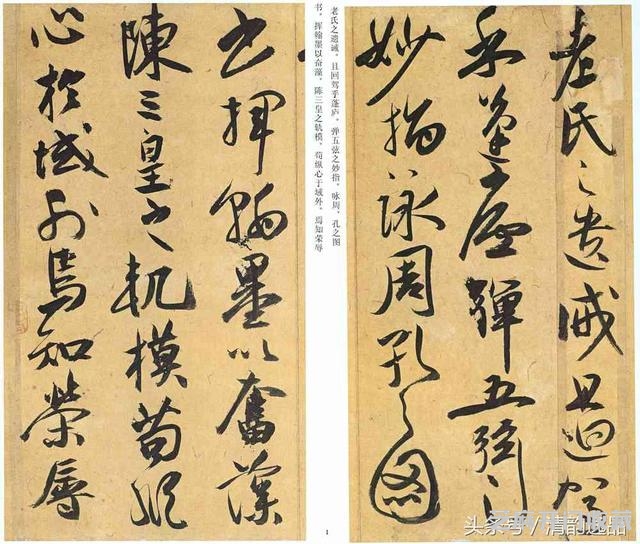 老氏之遺誡且迴駕
乎蓬廬彈五弦之
妙指詠周孔之圖
老氏之遗诫，且回驾乎蓬庐，弹五弦之妙指，咏周、孔之图
书，挥翰墨以奋藻，陈三皇之轨模，苟纵心于域外，焉知荣辱
書揮翰墨以奮藻
陳三皇之軌模苟縱
心於域外焉知榮辱
1
头条号/清韵逸品